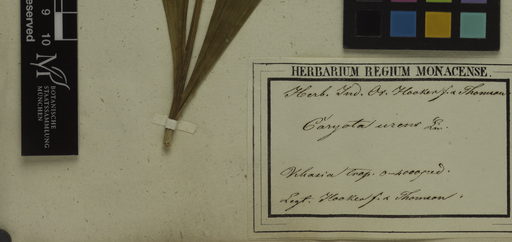 reserved
9 10
BOTANISCHE
STAATSSAMMLUNG
MÜNCHEN
HERBARIUM REGIUM MONACENSE.
Herb. Ind. Or. Hooker f. & Thomson
Caryota urens Lin.
Khasia trop. 0-4000ped.
Legt. Hooker f. & Thomson.